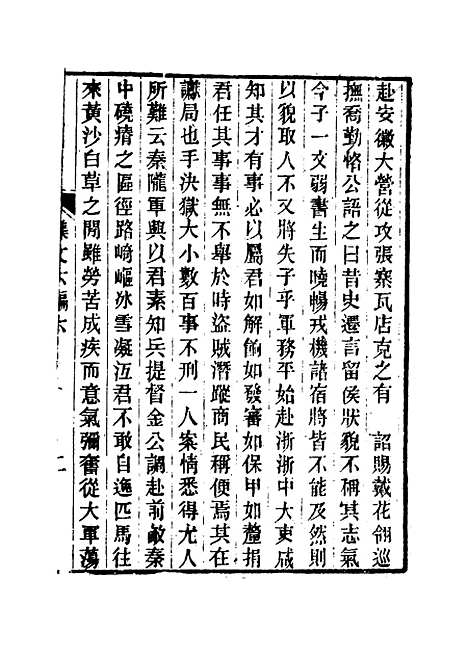 赴安徽大營從攻張寨瓦店克之有　詔賜戴花翎巡
撫喬勤恪公語之曰昔史遷言留侯狀貌不稱其志氣
今子一文弱書生而曉暢戎機諸宿將皆不能及然則
以貌取人不又將失子乎軍務平始赴浙浙中大吏咸
知其才有事必以屬君如解餉如發審如保甲如釐捐
君任其事事無不舉於時盜賊潛蹤商民稱便焉其在
讞局也手決獄大小數百事不刑一人案情悉得尤人
所難云秦隴軍興以君素知兵提督金公調赴前敵秦
中磽瘠之區徑路崎嶇冰雪凝沍君不敢自逸匹馬往
來黃沙白草之間雖勞苦成疾而意氣彌奮從大軍蕩
集文六編六